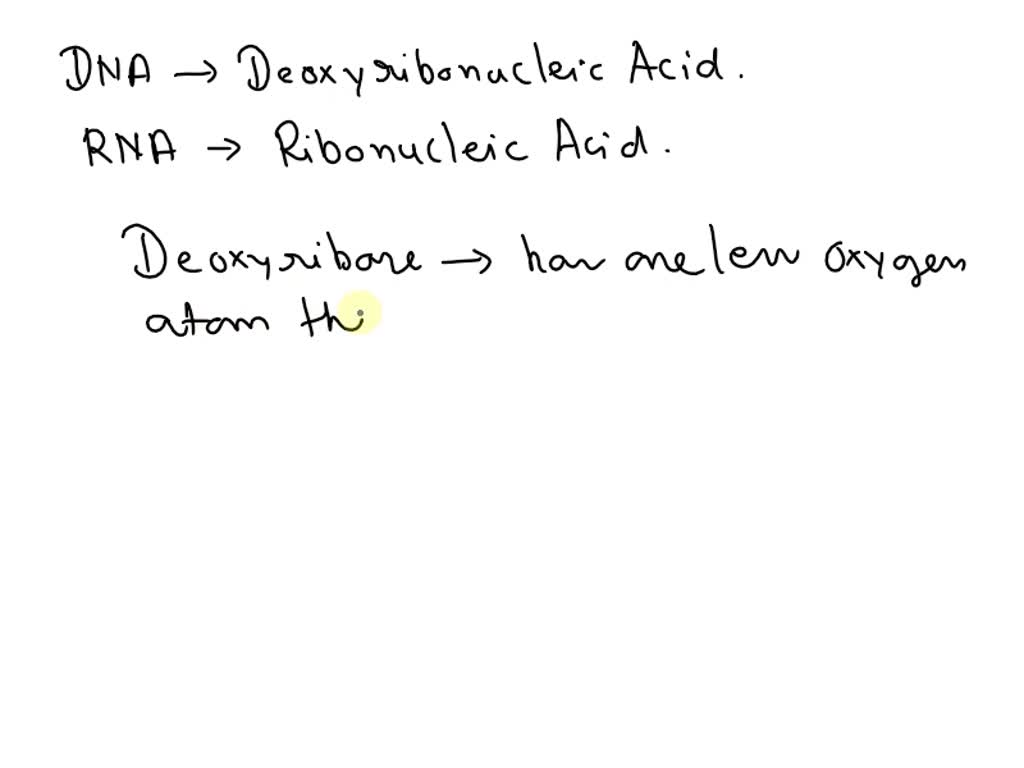 DNA → Deoxyribonucleic Acid.
RNA → Ribonucleic Acid.
Deoxyribose → has one less oxygen
atom thi